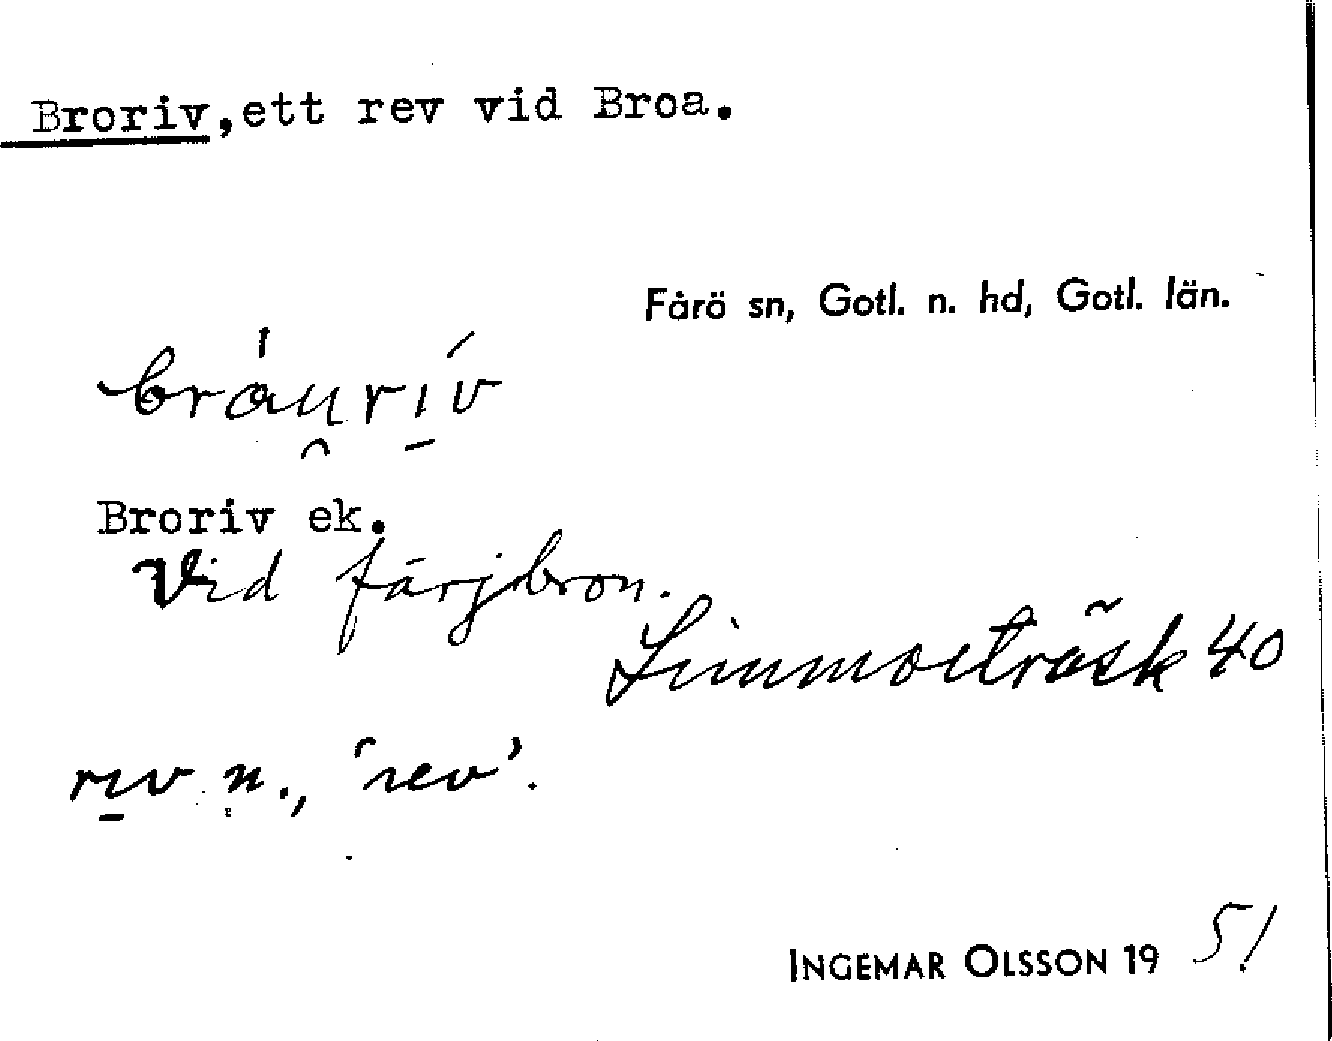 Broriv, ett rev vid Broa.
Fårö sn, Gotl. n. hd, Gotl. län.
Broriv ek.
Vid färjbron.
Limmorträsk 40
rıv n., 'rev'.
INGEMAR OLSSON 1951